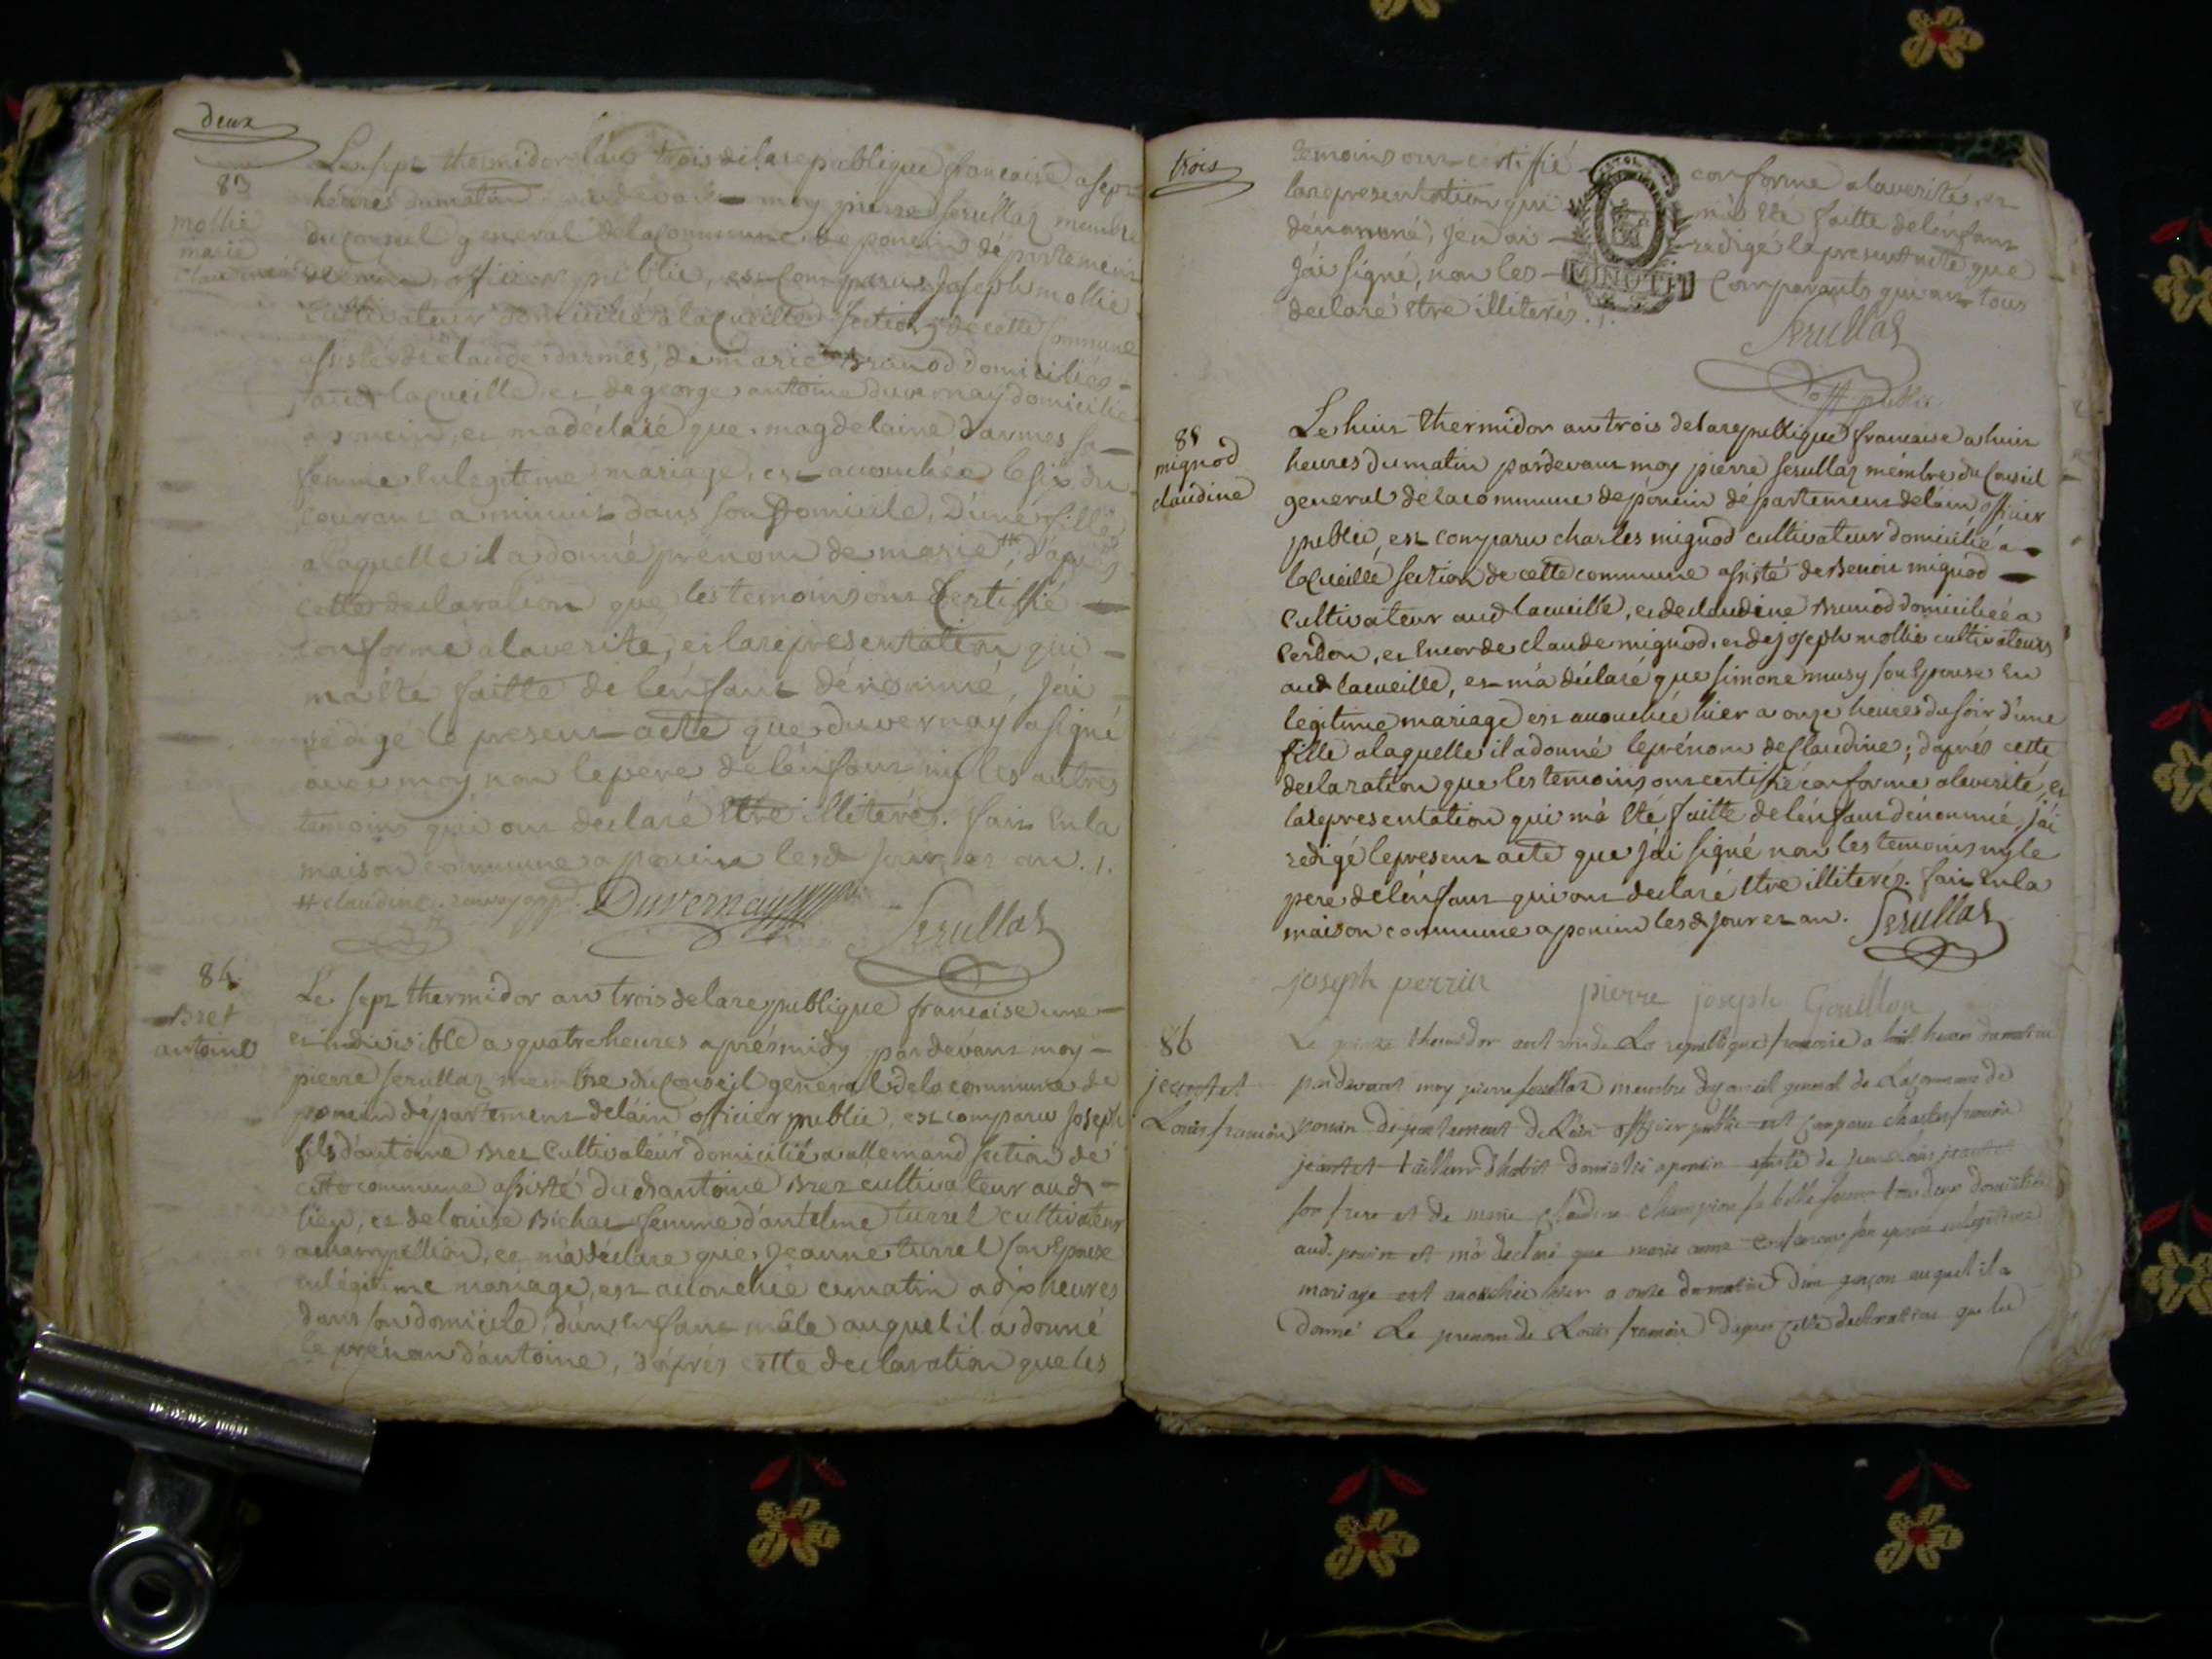 deux
83
mollie
marie
claudine
Le sept thermidor l'an trois de la republique francaise a sept
heures du matin, pardevant moy pierre Serullaz membre
du conseil general de la commune de poncin département
de l'ain officier public, est comparu Joseph mollie
cultivateur domicilié a lacueille section de cette commune
assisté de claude darmes, de marie Brunod domiciliés
aud lacueille et de george antoine duvernay domicilié
a poncin, et m'a déclaré que magdelaine d'armes sa
femme en legitime mariage, est accouchée le six du
courant a minuit dans son domicile, d'une fille
a laquelle il a donné prénom de marie #; d'après
cette declaration que les temoins ont certiffié
conforme a la verité, et la représentation qui
m'a été faitte de l'enfant dénommé, j'ai
rédigé le present acte que duvernay a signé
avec moy non le pere de l'enfant ny les autres
temoins qui ont declaré être illiterés. fait en la
maison commune a poncin lesd jour et an .1.
# claudine. renvoy app.
Duvernay
Serullaz
84
Bret
antoine
Le sept thermidor an trois de la republique francaise une
et indivisible a quatre heures aprésmidy pardévant moy
pierre Serullaz membre du Conseil general de la commune de
poncin département de l'ain officier public, est comparu Joseph
fils d'antoine Bret cultivateur domicilié a allemand section de
cette commune assisté dud antoine Bret cultivateur aud
lieu, et de louise Bichat femme d'antelme turrel cultivateur
a champellion, et m'a déclaré que Jeanne turrel son Epouse
en légitime mariage, est accouchée ce matin a dix heures
dans son domicile, d'un enfant mâle auquel il a donné
le prénom d'antoine, d'aprés cette declaration que les
trois
temoins ont certiffié conforme a la verité, et
la representation qui m'a été faitte de l'enfant
dénommé, j'en ai redigé le present acte que
j'ai signé, non les comparants qui ont tous
declaré être illiterés .1.
MINUTE
Serullaz
off. public
85
mignod
claudine
Le huit thermidor an trois de la republique francaise a huit
heures du matin pardevant moy pierre Serullaz membre du Conseil
general de la commune de poncin département de l'ain officier
public, est comparu charles mignod cultivateur domicilié a
lacueille section de cette commune assisté de Benoit mignod
cultivateur aud lacueille, et de claudine Brunod domiciliée a
Cerdon, et encor de claude mignod, et de joseph mollie cultivateurs
aud lacueille, et m'a déclaré que simone musy son Epouse en
légitime mariage est accouchée hier a onze heures du soir d'une
fille a laquelle il a donné le prénom de Claudine; d'aprés cette
declaration que les temoins ont certiffié conforme a la verité, et
la representation qui m'a été faitte de l'enfant dénommé, j'ai
redigé le present acte que j'ai signé non les temoins ny le
pere de l'enfant qui ont declaré être illiterés. fait en la
maison commune a poncin lesd jour et an. Serullaz
joseph perrin pierre joseph Gouillon
86
jeantet
Louis francois
Le thermidor an trois de La republique francoise a huit heures du matin
pardevant moy pierre serullaz membre du conseil general de La commune de
poncin département de L'ain officier public est comparu charles francois
jeantet tailleur d'habit domicilié a poncin assisté de jean Louis jeantet
son frere et de marie claudine champion sa belle soeur tous deux domiciliés
aud. poncin et m'a declaré que marie anne son epouse en legitime
mariage est accouchée hier a onze du matin d'un garçon auquel il a
donné Le prenom de Louis francois d'apres cette declaration que les